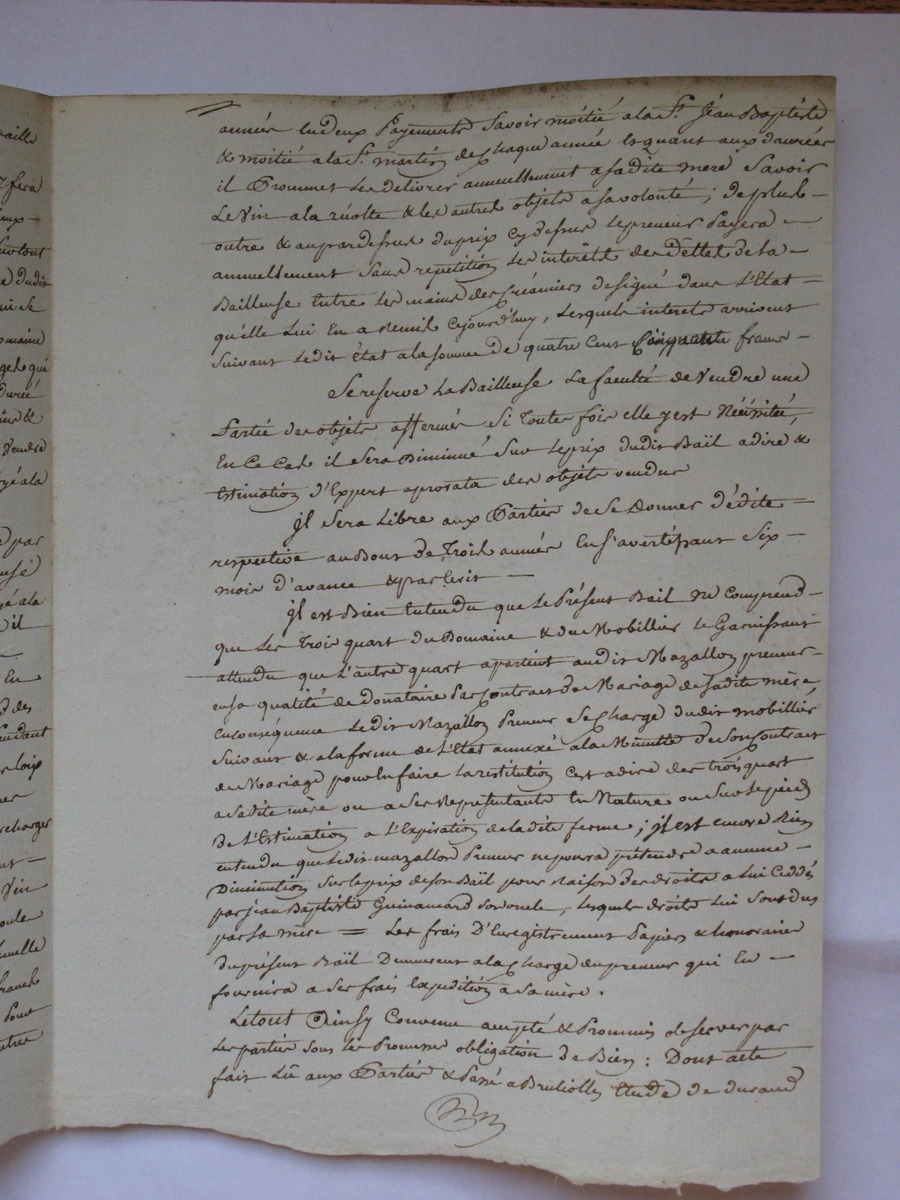 année en Deux Payements Savoir moitié a la St. Jean Baptiste
& moitié a la St. martin de Chaque année Et quant aux danrées
il Promet Les délivrer annuellement a sadite mere Savoir
Le Vin a la récolte & les autres objets a sa volonté; de plus
outre & aupardessus du prix cy dessus le preneur Payera
annuellement Sans repetition Les interêts des Dettes de la
Bailleuse Entre Les mains des Créanciers designé dans L'Etat
qu'elle Lui En a Remis Cejourd'huy, Lesquels interets arrivent
Suivant Ledit État a la somme de quatre Cent Cinquante francs
Se reserve La Bailleuse La faculté de Vendre une
Partie des objets affermés Si Toutes fois elle y est Nécéssité,
En Ce Cas il Sera Diminué Sur Le prix dudit Bail a dire &
Estimation d'Expert a prorata des objets vendus
Il Sera Libre aux Parties de Se Donner Dédite
respective au Bout de Trois années En s'avertissant Six
mois d'avance & par Ecrit
Il est Bien Entendu que Le Présent Bail ne Comprend
que Les Trois quart du Domaine & du Mobillier Le Garnissant
attendu que L'autre quart apartient audit Mazallon preneur
en sa qualité de Donataire Par Contract de Mariage de sadite mère,
en conséquence Ledit Mazallon Preneur Se Charge dudit mobillier
Suivant & a la forme de L'Etat annexé a la Minutte de Son Contract
de Mariage pour En faire La restitution C'est a dire des trois quart
a sadite mère ou a Ses Représentants En Nature ou Sur Le pied
De L'Estimation a L'Expiration de ladite ferme; il est encore Bien
entendu que Ledit mazallon Preneur ne poura prétendre a aucune
Diminution Sur le prix de son Bail pour Raison des droits a Lui Ceddés
par jean Baptiste Guinamard son oncle, Lesquels droits Lui Sont dus
par Sa mère = Les frais D'Enregistrement Papiers & honoraires
du présent Bail Demeurent a la Charge du preneur qui En
fournira a Ses frais Expédition a Sa mère.
Le tout Ainsy Convenu accepté & Promis observer par
Les parties Sous Les Promesses obligation de Biens: Dont acte
fait Lu aux Parties & Passé a Brulliolles Etude de durand